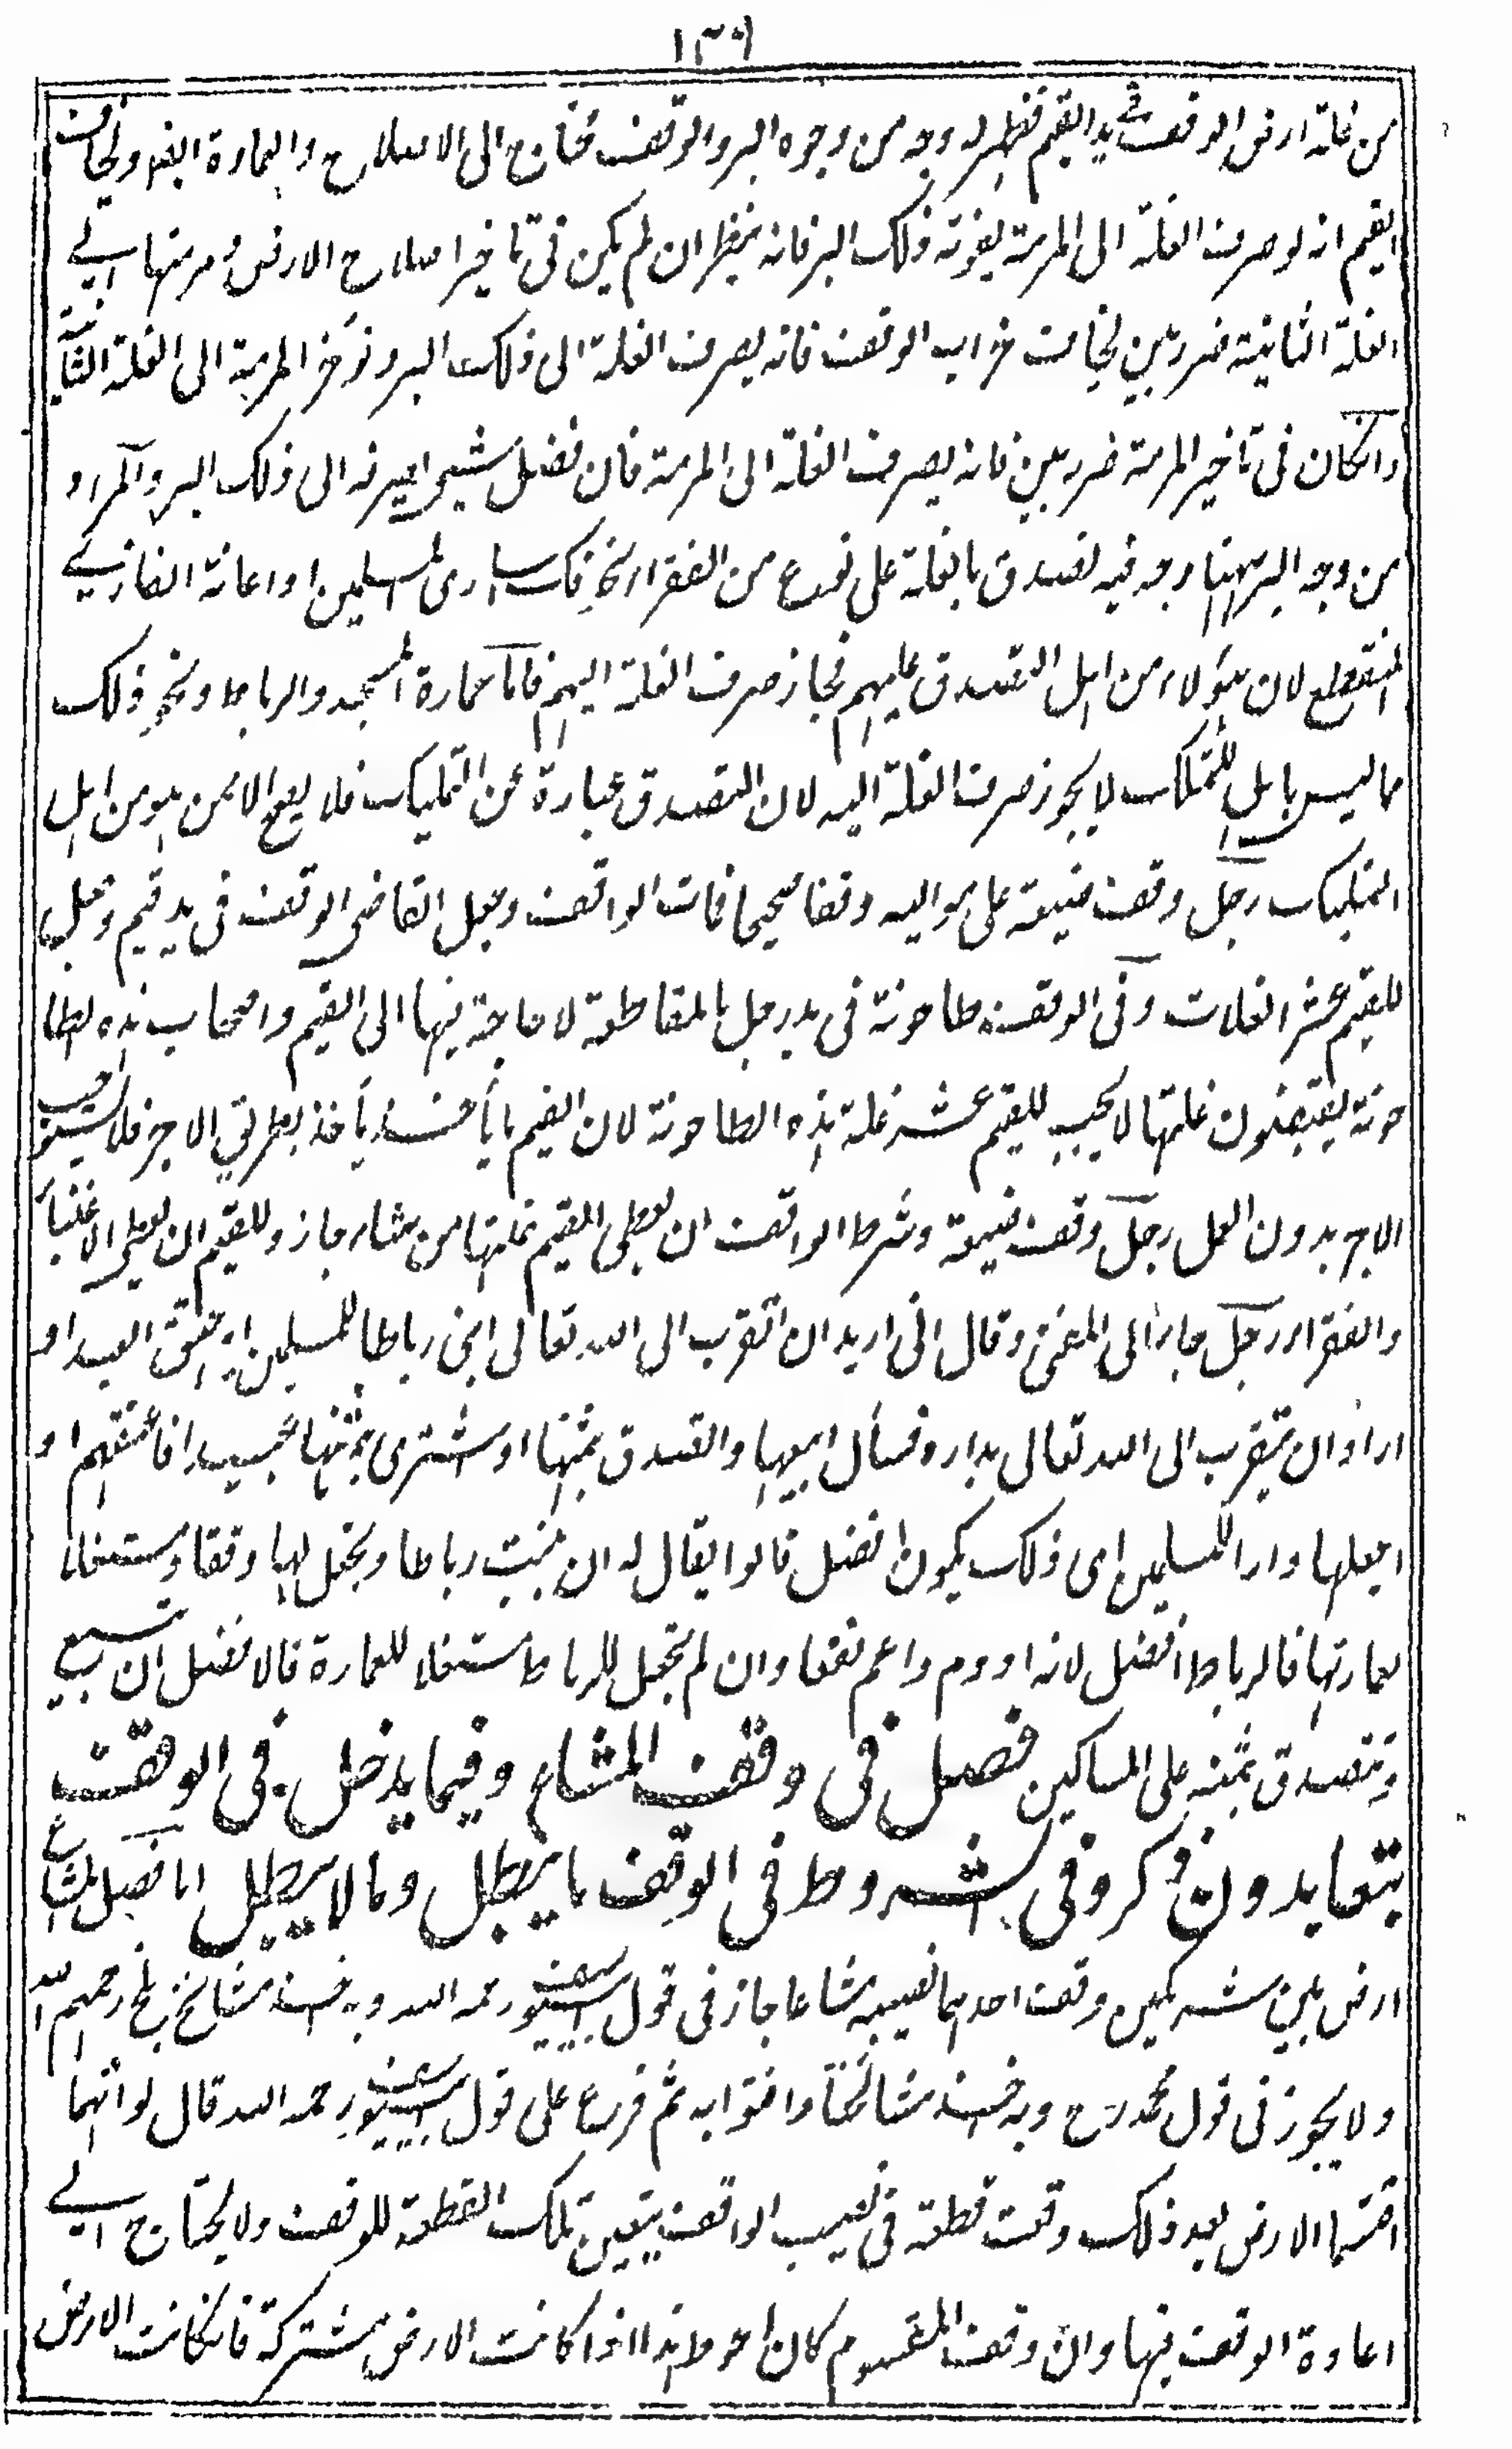 ١٣٦
من غلة ارض الوقف فى يد القيم فظهر له وجه من وجوه البر والوقف محتاج الى الاصلاح والعمارة ايضا ويخاف
القيم انه لو صرف الغلة الى المرمة يفوته ذلك البر فانه ينظر ان لم يكن فى تاخير اصلاح الارض ومرمتها الى
الغلة الثانية ضرر بين يخاف خراب الوقف فانه يصرف الغلة الى ذلك البر وتؤخر المرمة الى الغلة الثانية
وانكان فى تاخير المرمة ضرر بين فانه يصرف الغلة الى المرمة فان فضل شىء يصرفه الى ذلك البر والمراد
من وجه البر ههنا وجه فيه تصدق بالغلة على نوع من الفقراء نحو فك اسارى المسلمين او اعانة الغازى
المنقطع لان هؤلاء من اهل التصدق عليهم فجاز صرف الغلة اليهم فاما عمارة المسجد والرباط ونحو ذلك
مما ليس باهل للتملك لا يجوز صرف الغلة اليه لان التصدق عبارة عن التمليك فلا يصح الا ممن هو من اهل
التمليك رجل وقف ضيعة على مواليه وقفا صحيحا فمات الواقف وجعل القاضى الوقف فى يد قيم وجعل
للقيم عشر الغلات وفى الوقف طاحونة فى يد رجل بالمقاطعة لا حاجة فيها الى القيم واصحاب هذه الطا
حونة يقتضون غلتها لا يجب للقيم عشر غلة هذه الطاحونة لان القيم ما ياخذ ياخذ بطريق الاجر فلا يستوجب
الاجر بدون العمل رجل وقف ضيعة وشرط الواقف ان يعطى القيم غلتها من شاء جاز وللقيم ان يعطى الاغنياء
والفقراء رجل جاء الى المفتى وقال انى اريد ان اتقرب الى الله تعالى ابنى رباطا للمسلمين او اعتق العبيد او
اراد ان يتقرب الى الله تعالى بداره فسأل ابيعها واتصدق بثمنها او اشترى بثمنها عبيدا فاعتقهم او
اجعلها دارا للمسلمين اى ذلك يكون افضل قالوا يقال له ان بنيت رباطا وتجعل لها وقفا ومستغلا
لعمارتها فالرباط افضل لانه ادوم واعم نفعا وان لم تجعل للرباط مستغلا للعمارة فالافضل ان تبيع
وتتصدق بثمنه على المساكين فصل فى وقف المشاع وفيما يدخل فى الوقف
تبعا بدون ذكر وفى شروط فى الوقف ما يبطل وما لا يبطل اما فصل المشاع
ارض بين شريكين وقف احدهما نصيبه مشاعا جاز فى قول ابى يوسف رحمه الله وبه اخذ مشائخ بلخ رحمهم الله
ولا يجوز فى قول محمد رح وبه اخذ مشائخنا وافتوا به ثم فرع على قول ابى يوسف رحمه الله قال لو انهما
اقتسما الارض بعد ذلك وقعت قطعة فى نصيب الواقف يتعين تلك القطعة للوقف ولا يحتاج الى
اعادة الوقف فيها وان وقف المقسوم كان احوط هذا اذا كانت الارض مشتركة فانكانت الارض